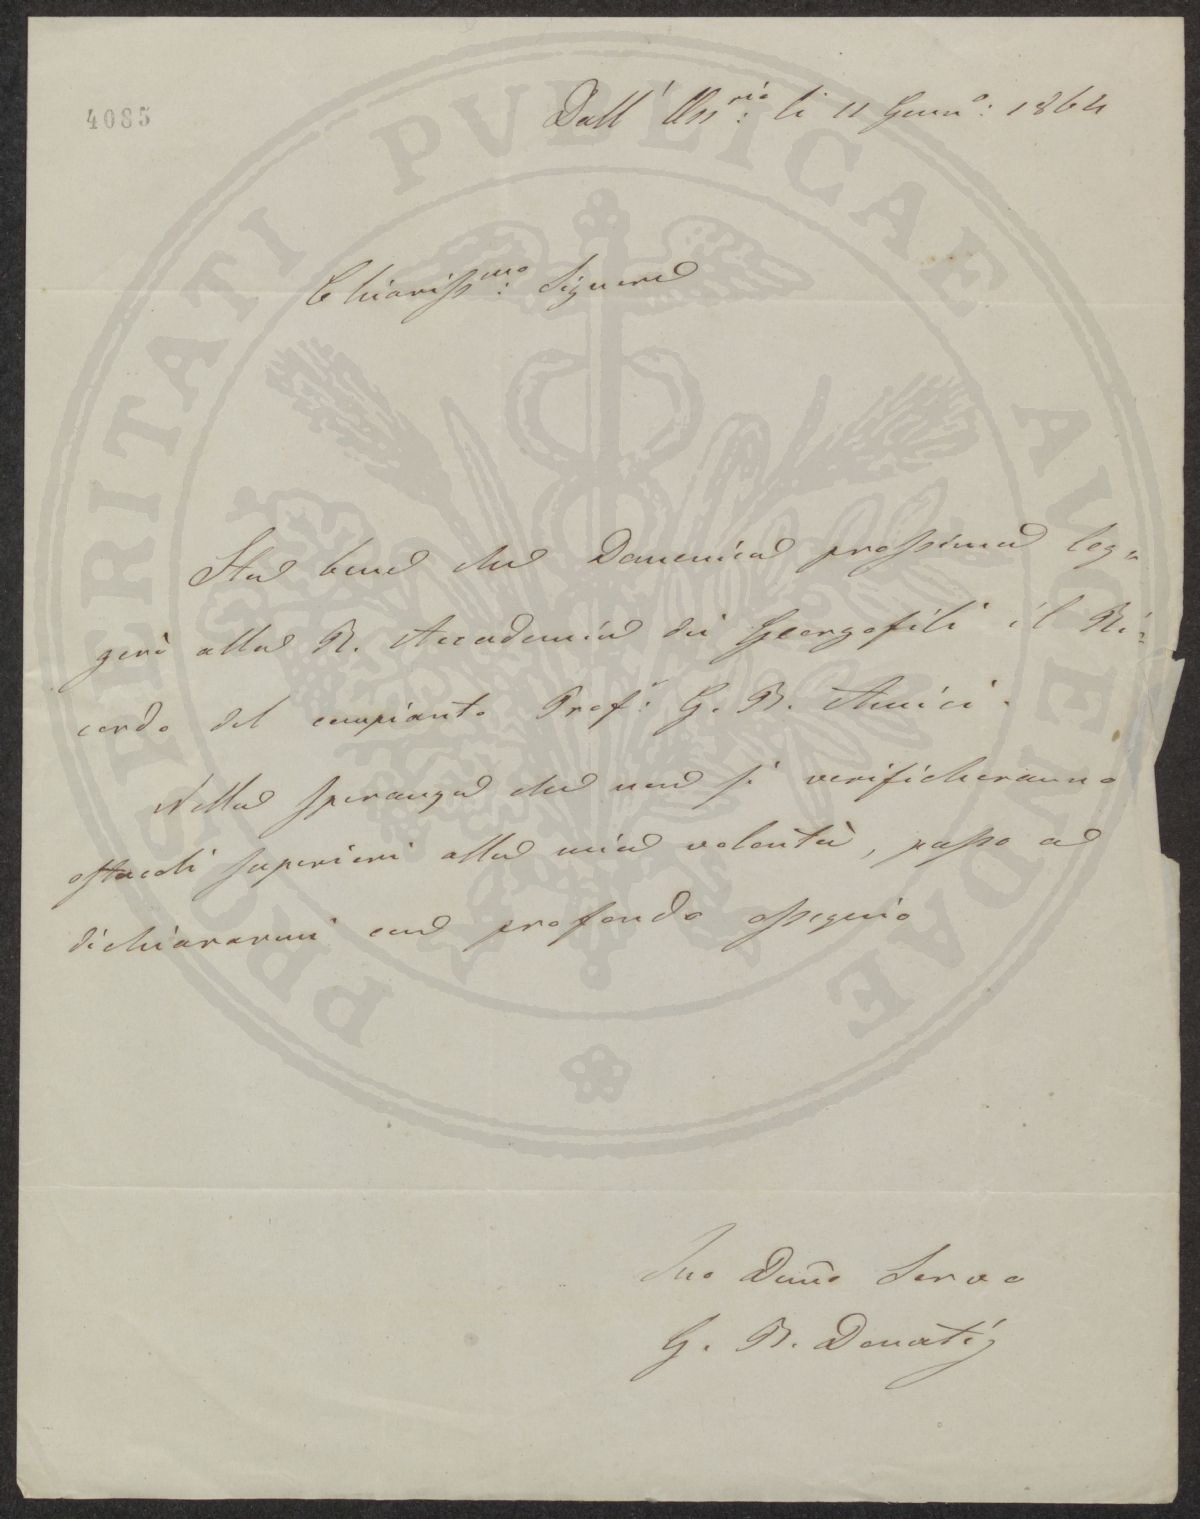 4085
Dall' Oss.rio: li 11 Genn.o: 1864
Chiariss.mo: Signore
Sta bene che Domenica prossima leg=
gerò alla R. Accademia dei Georgofili il Ri=
cordo del compianto Prof.: G. B. Amici.
Nella speranza che non si verificheranno
ostacoli superiori alla mia volontà, passo a
dichiararmi con profondo ossequio
Suo Dmo Servo
G. B. Donati
PROSPERITATI PVBLICAE AVGENDAE